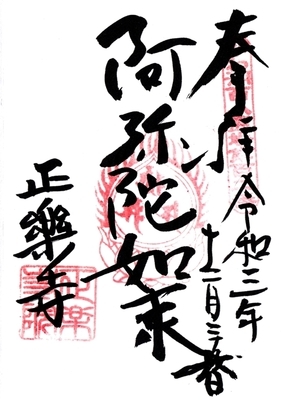 奉拝
令和三年
十二月三十一日
阿弥陀如来
正樂寺